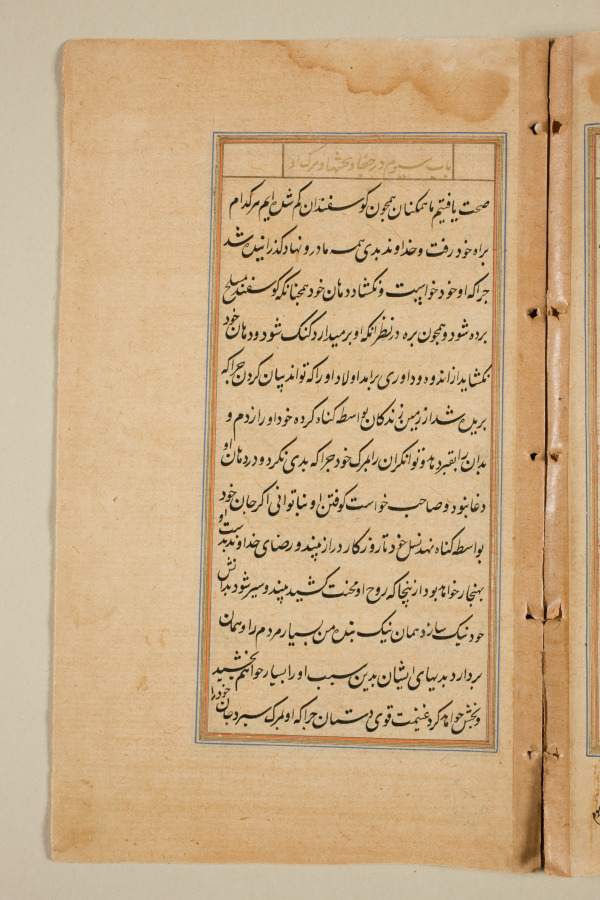 باب سیوم در جفا و محنتها و مرک او
صحت یافتیم ما همکنان همچون کوسفندان کم شده ایم هر کدام
براه خود رفت و خداوند بدی همه ما درو نهاد کذرانیده شد
جراکه او خود خواست و نکشاد دهان خود همچنانکه کوسفند بمسلح
برده شود و همچون بره در نظر انکه او بر میدارد کنک شود و دهان خود
نکشاید از اندوه و داوری برامد اولاد او را که تواند بیان کردن جراکه
بریده شد از زمین زندکان بواسطه کناه کرده خود او را زدم و
بدان را بقبر دهد و توانکران را بمرک خود جراکه بدی نکرد و در دهان او
دغا نبود و صاحب خواست کوفتن او بناتوانی اکر جان خود
بواسطه کناه نهد نسل خود تا روزکار دراز بیند و رضای خداوند بدست او
بهنجار خواهد بود از بنجا که روح او محنت کشید بیند و سیر شود بدانش
خود نیک سازد همان نیک بنده من بسیار مردم را و همان
بردارد بدیهای ایشان بدین سبب او را بسیار خواهم بخشید
و بخش خواهد کرد غنیمت قوی دستان جراکه او بمرک سبرد جان خود را